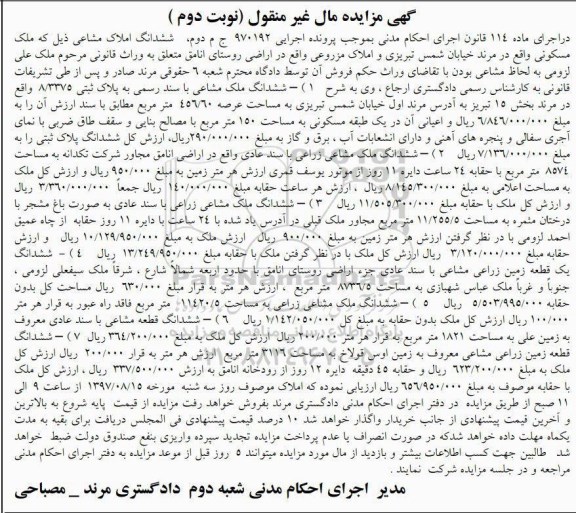 گهی مزایده مال غیر منقول (نوبت دوم )
دراجرای ماده ۱۱۴ قانون اجرای احکام مدنی بموجب پرونده اجرایی ۹۷۰۱۹۲ ج م دوم، ششدانگ املاک مشاعی ذیل که ملک
مسکونی واقع در مرند خیابان شمس تبریزی و املاک مزروعی واقع در اراضی روستای انامق متعلق به وراث قانونی مرحوم ملک علی
لزومی به لحاظ مشاعی بودن با تقاضای وراث حکم فروش آن توسط دادگاه محترم شعبه ۶ حقوقی مرند صادر و پس از طی تشریفات
قانونی به کارشناس رسمی دادگستری ارجاع ، وی به شرح ۱) – ششدانگ ملک مشاعی با سند رسمی به پلاک ثبتی ۸/۳۳۷۵ واقع
در مرند بخش ۱۵ تبریز به آدرس مرند اول خیابان شمس تبریزی به مساحت عرصه ۴۵۶/۶۰ متر مربع مطابق با سند ارزش آن را به
مبلغ ۶/۸۴۶/۰۰۰/۰۰۰ ریال و اعیانی آن در یک طبقه مسکونی به مساحت ۱۵۰ متر مربع با مصالح بنایی و سقف طاق ضربی با نمای
آجری سفالی و پنجره های آهنی و دارای انشعابات آب ، برق و گاز به مبلغ ۲۹۰/۰۰۰/۰۰۰ریال، ارزش کل ششدانگ پلاک ثبتی را به
مبلغ ۷/۱۳۶/۰۰۰/۰۰۰ ریال ۲) – ششدانگ ملک مشاعی زراعی با سند عادی واقع در اراضی انامق مجاور شرکت تکدانه به مساحت
۸۵۷۴ متر مربع با حقابه ۲۴ ساعت دایره ۱۲ روز از موتور یوسف قمری ارزش هر متر زمین به مبلغ ۹۵۰/۰۰۰ ریال و ارزش کل ملک
به مساحت اعلامی به مبلغ ۸/۱۴۵/۳۰۰/۰۰۰ریال ، ارزش هر ساعت حقابه مبلغ ۱۴۰۰۰۰/۰۰۰ ریال جمعاً ۳/۳۶۰/۰۰۰/۰۰۰ ریال
و ارزش کل ملک با حقابه مبلغ ۱۱/۵۰۵/۳۰۰/۰۰۰ ریال ۳) – ششدانگ ملک مشاعی زراعی با سند عادی به صورت باغ مشجر با
درختان مثمره به مساحت ۱۱/۲۵۵/۵ متر مربع مجاور ملک قبلی در آدرس یاد شده با ۲۴ ساعت با دایره ۱۱ روز حقابه از چاه عمیق
احمد لزومی با در نظر گرفتن ارزش هر متر زمین به مبلغ ۹۰۰/۰۰۰ ریال ارزش ملک به مبلغ ۱۰/۱۲۹/۹۵۰/۰۰۰ ریال و ارزش
حقابه مبلغ ۳/۱۲۰/۰۰۰/۰۰۰ ریال ارزش کل ملک با در نظر گرفتن ملک و حقابه مبلغ ۱۳/۲۴۹/۹۵۰/۰۰۰ ریال ۴) – ششدانگ
یک قطعه زمین زراعی مشاعی با سند عادی جزء اراضی روستای انامق با حدود اربعه شمالاً شارع ، شرقاً ملک سیفعلی لزومی ،
جنوباً و غرباً ملک عباس شهبازی به مساحت ۸۷۳۶/۵ متر مربع ، ارزش هر متر به قرار مبلغ ۶۳۰/۰۰۰ ریال مساحت کل بدون
حقابه ۵/۵۰۳/۹۹۵/۰۰۰ ریال ۵) – ششدانگ ملک مشاعی زراعی به مساحت ۱۱۴۲۰/۵ متر مربع فاقد راه عبور به قرار هر متر
۱۰۰/۰۰۰ ریال ارزش کل ملک بدون حقابه به مبلغ کل ۱/۱۴۲/۰۵۰/۰۰۰ ریال ۶) – ششدانگ قطعه مشاعی با سند عادی معروف
به زمین علی به مساحت ۱۸۲۱ متر مربع به قرار هر متر ۲۰۰/۰۰۰ ریال ارزش کل ملک به مبلغ ۳۶۴/۲۰۰/۰۰۰ ریال ۷) – ششدانگ
قطعه زمین زراعی مشاعی معروف به زمین اوس قولاخ به مساحت ۳۱۱۶ متر مربع ارزش هر متر به قرار ۲۰۰/۰۰۰ ریال ارزش کل
ملک به مبلغ ۶۲۳/۲۰۰/۰۰۰ ریال و حقابه ۴۵ دقیقه دایره ۱۲ روز از رودخانه انامق به ارزش ۳۳۷/۵۰۰/۰۰۰ ریال ، ارزش کل ملک
با حقابه موصوف به مبلغ ۶۵۶/۹۵۰/۰۰۰ ریال ارزیابی نموده که املاک موصوف روز سه شنبه مورخه ۱۳۹۷/۰۸/۱۵ از ساعت ۹ الی
۱۱ صبح از طریق مزایده در دفتر اجرای احکام مدنی دادگستری مرند بفروش خواهد رفت مزایده از قیمت پایه شروع به بالاترین
و آخرین قیمت پیشنهادی از جانب خریدار واگذار خواهد شد ۱۰ درصد قیمت پیشنهادی فی المجلس دریافت برای بقیه به مدت
یکماه مهلت داده خواهد شدکه در صورت انصراف یا عدم پرداخت مزایده تجدید سپرده واریزی بنفع صندوق دولت ضبط خواهد
شد طالبین جهت کسب اطلاعات بیشتر و بازدید از مال مورد مزایده میتوانند ۵ روز قبل از موعد مزایده به دفتر اجرای احکام مدنی
مراجعه و در جلسه مزایده شرکت نمایند .
مدیر اجرای احکام مدنی شعبه دوم دادگستری مرند _ مصباحی